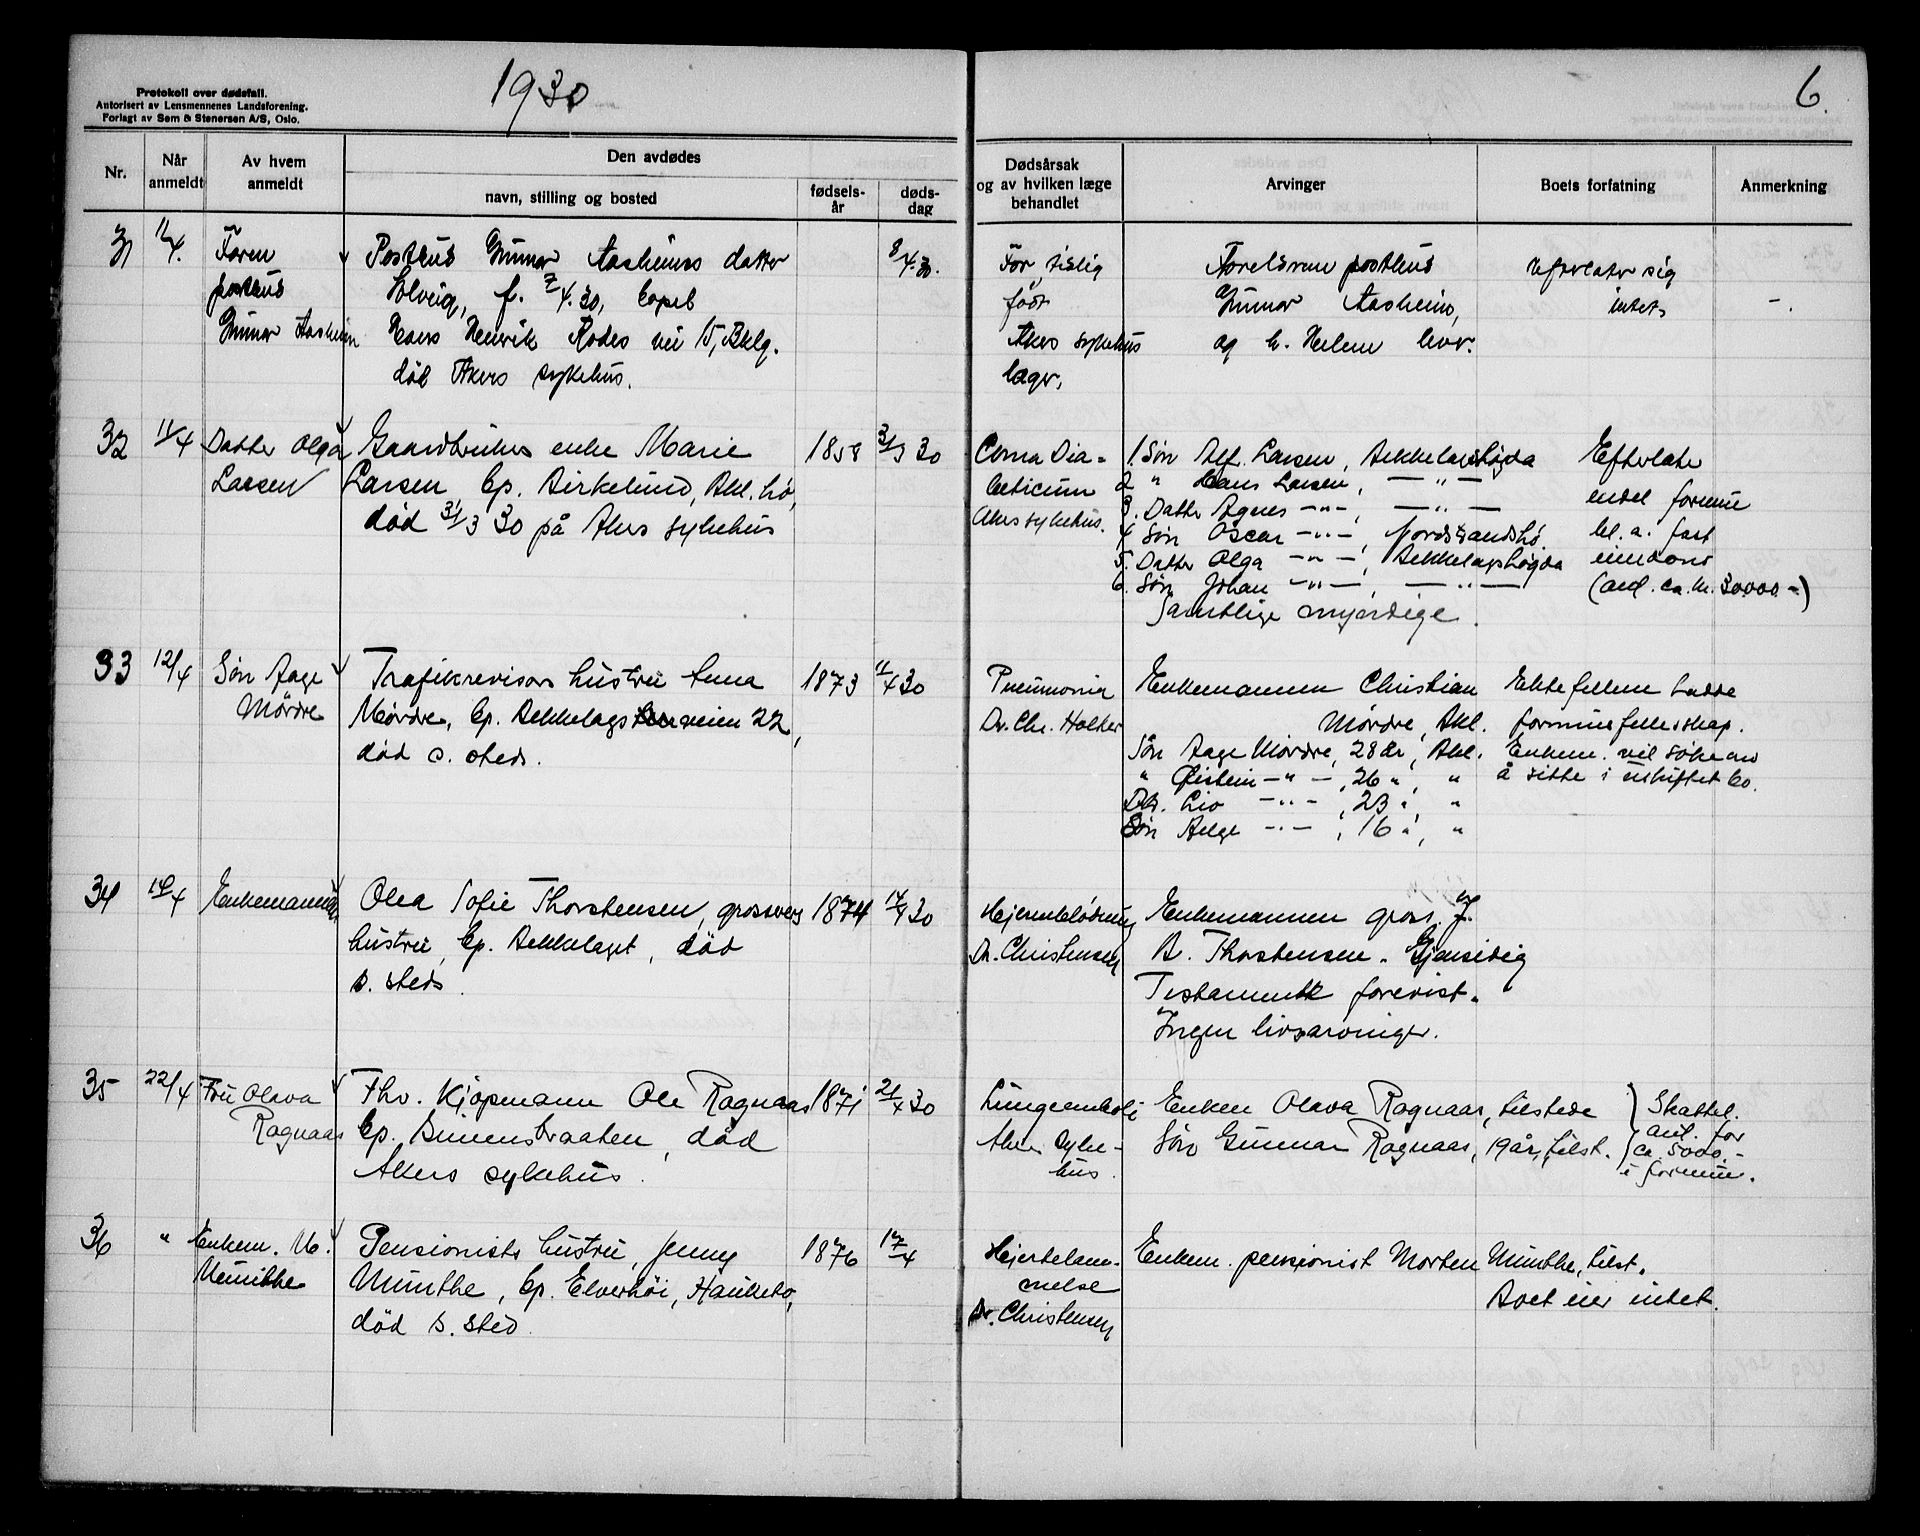 Protokoll over dødsfall.
Autorisert av Lensmennenes Landsforening.
Forlagt av Sem & Stenersen A/S, Oslo.
1930
6.
Nr.
Når anmeldt
Av hvem anmeldt
Den avdødes
navn, stilling og bosted
fødsels-år
døds-dag
Dødsårsak og av hvilken læge behandlet
Arvinger
Boets forfatning
Anmerkning
31
11/4.
Faren
postbud
Gunnar Aasheim
Postbud Gunnar Aasheims datter
Solveig, f. 7/4.30, bopel
Hans Henrik Rodes vei 15, Bklg.
död Akers sykehus.
8/4.30.
For tidlig
født
Akers sykehus
læger.
Forelsrene postbud
Gunnar Aasheim,
og h. Helene
Efterlater sig
intet.
-.
32
11/4
Datter Olga
Larsen
Gaardbruker enke Marie
Larsen, bp. Birkelund, Bkl.hø,
död 31/3 30 på Akers sykehus
1858
31/3 30
Coma Dia-
beticum
Akers sykehus.
1. Søn Alf. Larsen, Bekkelagshøgda
2 " Hans Larsen, — " —
3. Datter Agnes — " —, — " —
4 Søn Oscar — " —, Nordstrandshø
5. Datter Olga — " —, Bekkelagshøgda
6. Søn Johan — " —, — " —
Samtlige myndige.
Efterlater
endel formue
bl. a. fast
eiendom
(anl. ca. kr. 30000 -)
33
12/4
Søn Aage
Mördre
Trafikrevisors hustru Anna
Mördre, bp. Bekkelagsveien 22,
död s. steds.
1873
11/4 30
Pneumonia
Dr. Chr. Holker
Enkemannen Christian
Mördre, Bkl.
Søn Aage Mördre, 28 år, Bkl.
" Øistein — " —, 26 ", "
Dtr. Liv — " —, 23 ", "
Søn Helge — " —, 16 ", "
Ektefellene hadde
formuesfellesskap.
Enkem. vil söke om
å sitte i uskiftet bo.
34
14/4
Enkemannen
Olea Sofie Thorstensen, grosserers
hustru, bp. Bekkelaget, död
s. steds.
1874
14/4 30
Hjerneblödning
Dr. Christensen
Enkemannen gross. J.
B. Thorstensen. Gjensidig
Testamente forevist.
Ingen livsarvinger.
35
22/4
Fru Olava
Ragnaas
Fhv. Kjöpmann Ole Ragnaas
bp. Simensbraaten, död
Akers sykehus.
1871
21/4 30
Lungeemboli
Akers syke-
hus.
Enken Olava Ragnaas, tilstede
Søn Gunnar Ragnaas, 19 år, tilst.
Skattel.
anl. for
ca. 5000.-
i formue.
36
"
Enkem. M.
Munthe
Pensionists hustru, Jenny
Munthe, bp. Elverhöi, Hauketo,
död s. sted.
1876
17/4
Hjertelam-
melse
Dr. Christensen
Enkem. pensjonist Morten Munthe, tilst.
Boet eier intet.